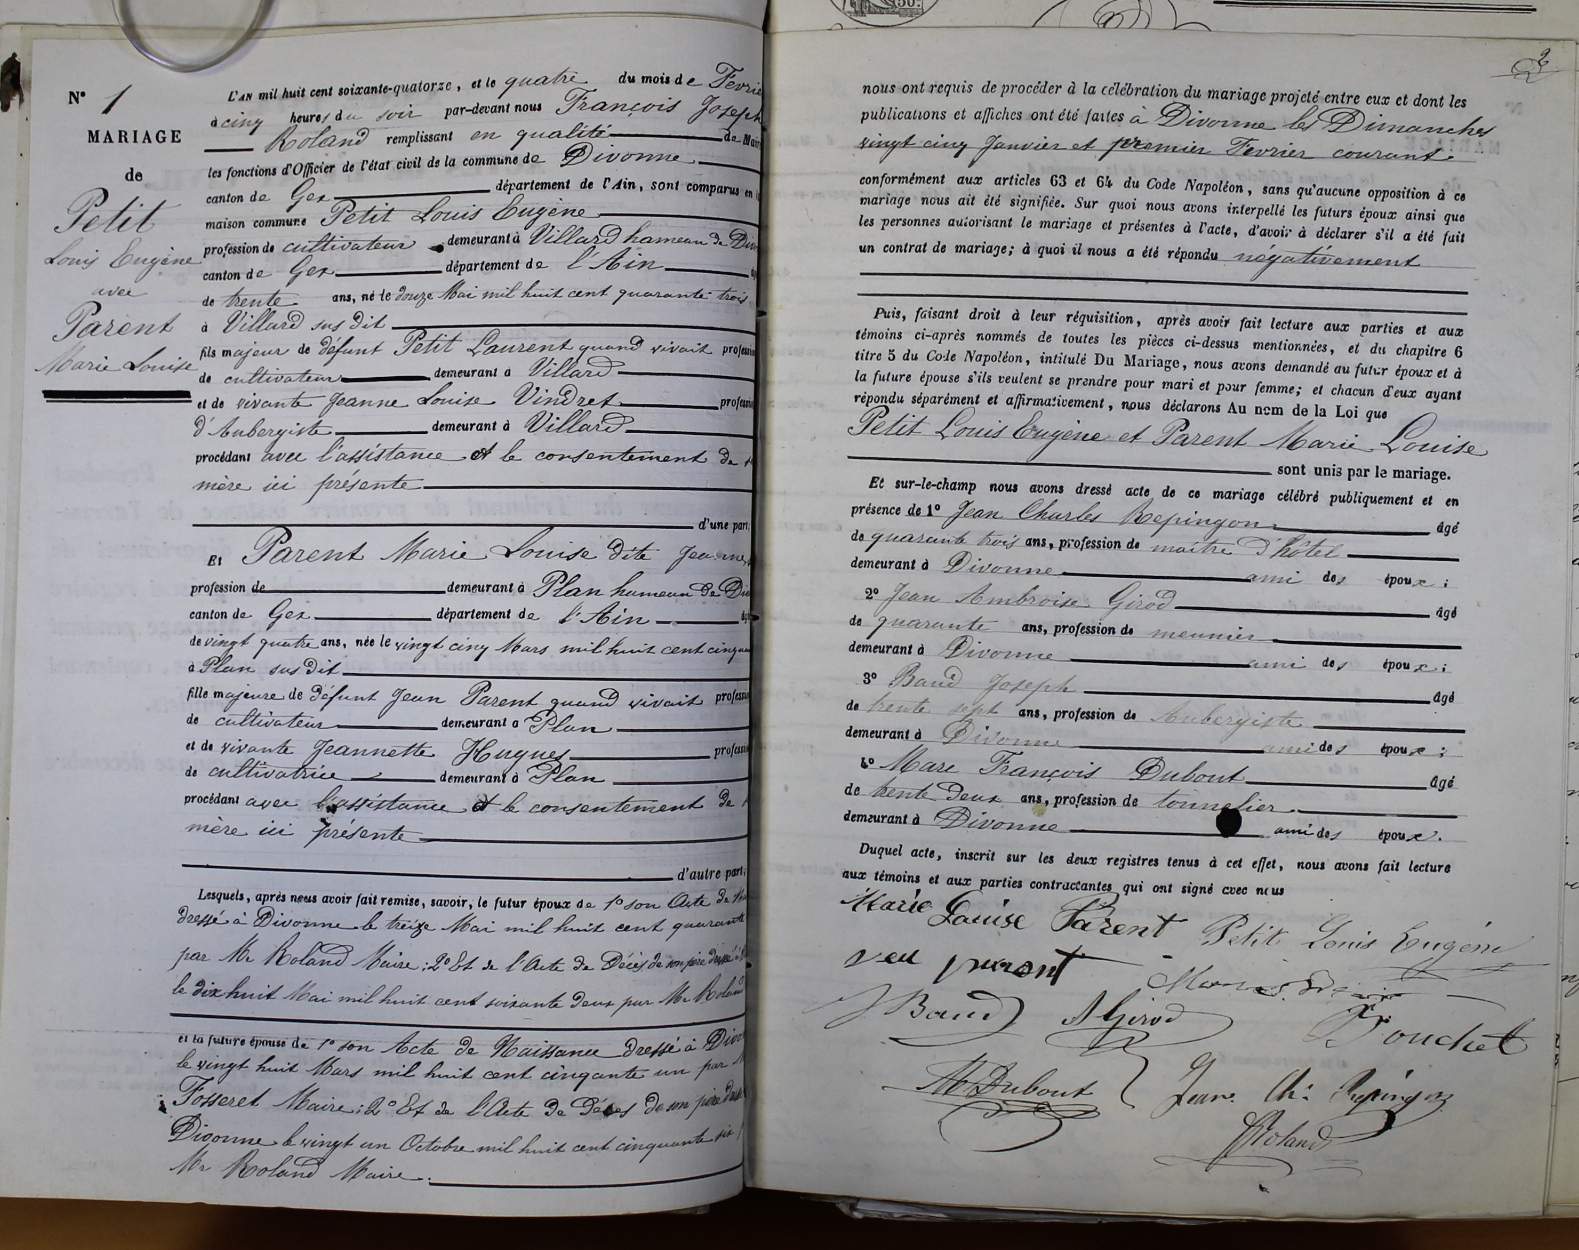 N° 1
MARIAGE
de
Petit
Louis Eugène
avec
Parent
Marie Louise
L'AN mil huit cent soixante-quatorze, et le quatre du mois de Fevrie
à cinq heures du soir par-devant nous François Joseph
Roland remplissant en qualité de Mair
les fonctions d'Officier de l'état civil de la commune de Divonne
canton de Gex département de l'Ain, sont comparus en
maison commune Petit Louis Eugène
profession de cultivateur demeurant à Villard hameau de Div
canton de Gex département de l'Ain
de trente ans, né le douze Mai mil huit cent quarante trois
à Villard sus dit
fils majeur de défunt Petit Laurent quand vivait profession
de cultivateur demeurant a Villard
et de vivante Jeanne Louise Vindret profession
d'Aubergiste demeurant à Villard
procédant avec l'assistance et le consentement de
mère ici présente
d'une part,
Et Parent Marie Louise dite Jeanne
profession de demeurant à Plan hameau de Div
canton de Gex département de l'Ain
de vingt quatre ans, née le vingt cinq Mars mil huit cent cinquan
à Plan sus dit
fille majeure de défunt Jean Parent quand vivait profession
de cultivateur demeurant a Plan
et de vivante Jeannette Hugues profession
de cultivatrice demeurant à Plan
procédant avec l'assistance et le consentement de
mère ici présente
d'autre part;
Lesquels, après nous avoir fait remise, savoir, le futur époux de 1° son Acte de
dressé à Divonne le treize Mai mil huit cent quarante
par Mr Roland Maire; 2° Et de l'Acte de Décès de son père dressé à
le dix huit Mai mil huit cent soixante deux par Mr Roland
et la future épouse de 1° son Acte de Naissance dressé à Divon
le vingt huit Mars mil huit cent cinquante un par
Fosseret Maire; 2° Et de l'Acte de Décès de son père dressé
Divonne le vingt un Octobre mil huit cent cinquante six
Mr Roland Maire.
2
nous ont requis de procéder à la célébration du mariage projeté entre eux et dont les
publications et affiches ont été faites à Divonne les Dimanches
vingt cinq Janvier et premier Fevrier courant.
conformément aux articles 63 et 64 du Code Napoléon, sans qu'aucune opposition à ce
mariage nous ait été signifiée. Sur quoi nous avons interpellé les futurs époux ainsi que
les personnes autorisant le mariage et présentes à l'acte, d'avoir à déclarer s'il a été fait
un contrat de mariage; à quoi il nous a été répondu négativement
Puis, faisant droit à leur réquisition, après avoir fait lecture aux parties et aux
témoins ci-après nommés de toutes les pièces ci-dessus mentionnées, et du chapitre 6
titre 5 du Code Napoléon, intitulé Du Mariage, nous avons demandé au futur époux et à
la future épouse s'ils veulent se prendre pour mari et pour femme; et chacun d'eux ayant
répondu séparément et affirmativement, nous déclarons Au nom de la Loi que
Petit Louis Eugène et Parent Marie Louise
sont unis par le mariage.
Et sur-le-champ nous avons dressé acte de ce mariage célébré publiquement et en
présence de 1° Jean Charles Repingon âgé
de quarante trois ans, profession de maître d'hôtel
demeurant à Divonne ami des époux;
2° Jean Ambroise Girod âgé
de quarante ans, profession de meunier
demeurant à Divonne ami des époux;
3° Baud Joseph âgé
de trente sept ans, profession de Aubergiste
demeurant à Divonne ami des époux;
4° Marc François Dubout âgé
de trente deux ans, profession de tonnelier
demeurant à Divonne ami des époux.
Duquel acte, inscrit sur les deux registres tenus à cet effet, nous avons fait lecture
aux témoins et aux parties contractantes qui ont signé avec nous
Marie Louise Parent Petit Louis Eugène
veu parent
Baud A Girod Bouchet
M Dubout Jean Ch: Repingon
Roland